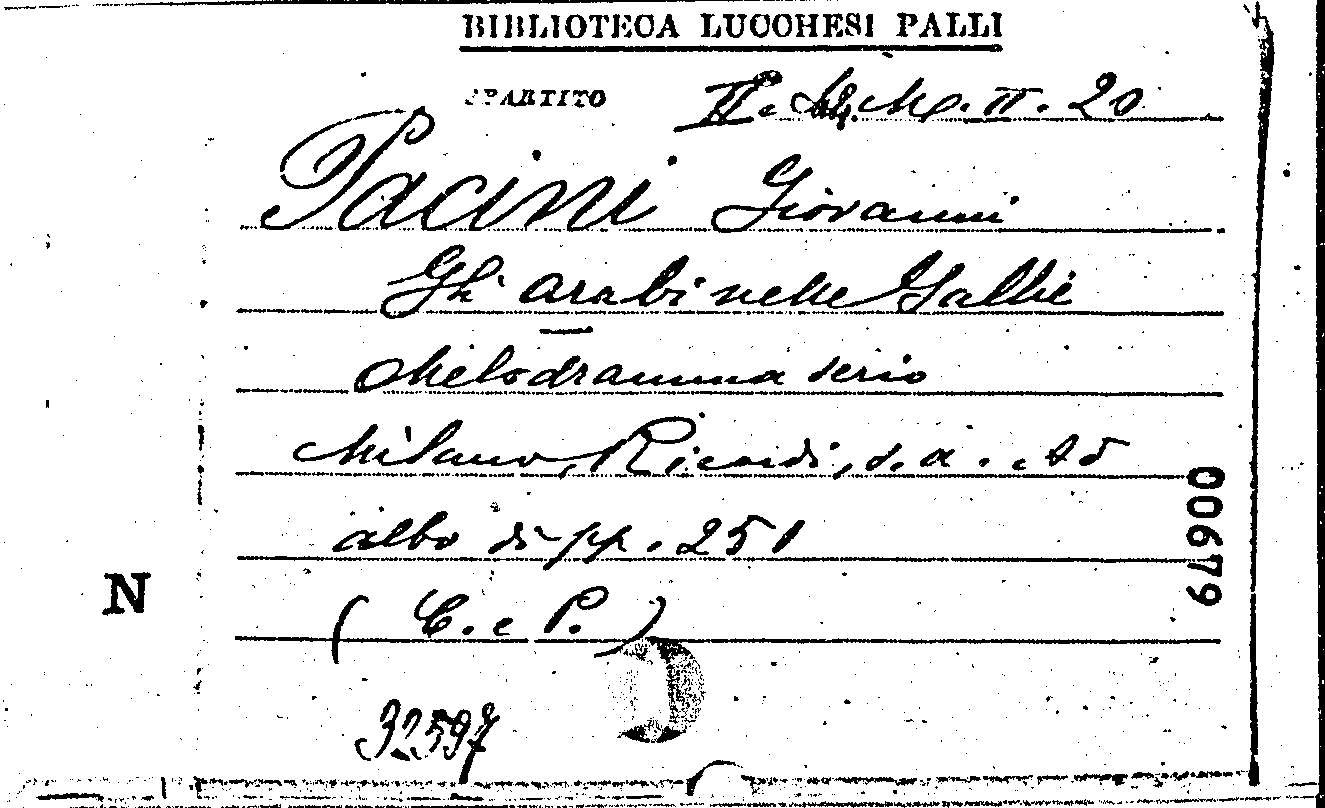 BIBLIOTECA LUCCHESI PALLI
SPARTITO II. M. II. 20
Pacini Giovanni
Gli arabi nelle Gallie
Melodramma serio
Milano, Ricordi, s.a. In
albo di pp. 251
( C. e P. )
32597
N
00679